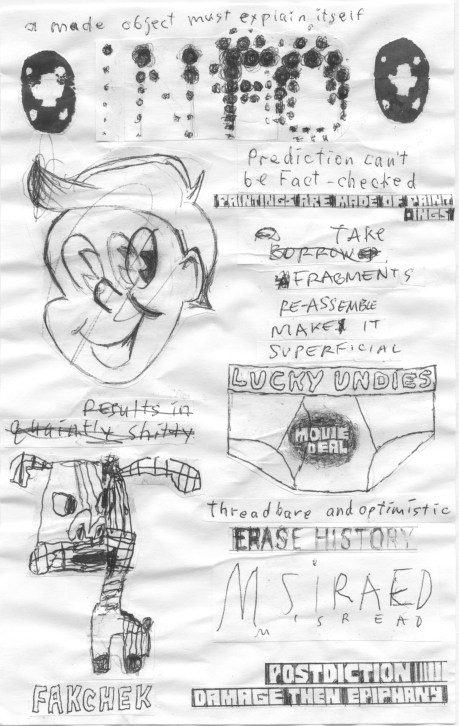 a made object must explain itself
INFO
Prediction can't
be Fact-checked
PAINTINGS ARE MADE OF PAINT
INGS
TAKE
BORROW
FRAGMENTS
RE-ASSEMBLE
MAKE IT
SUPERFICIAL
LUCKY UNDIES
MOVIE
DEAL
Results in
quaintly shitty
threadbare and optimistic
ERASE HISTORY
MSiRAED
MISREAD
POSTDICTION
DAMAGE THEN EPIPHANY
FAKCHEK